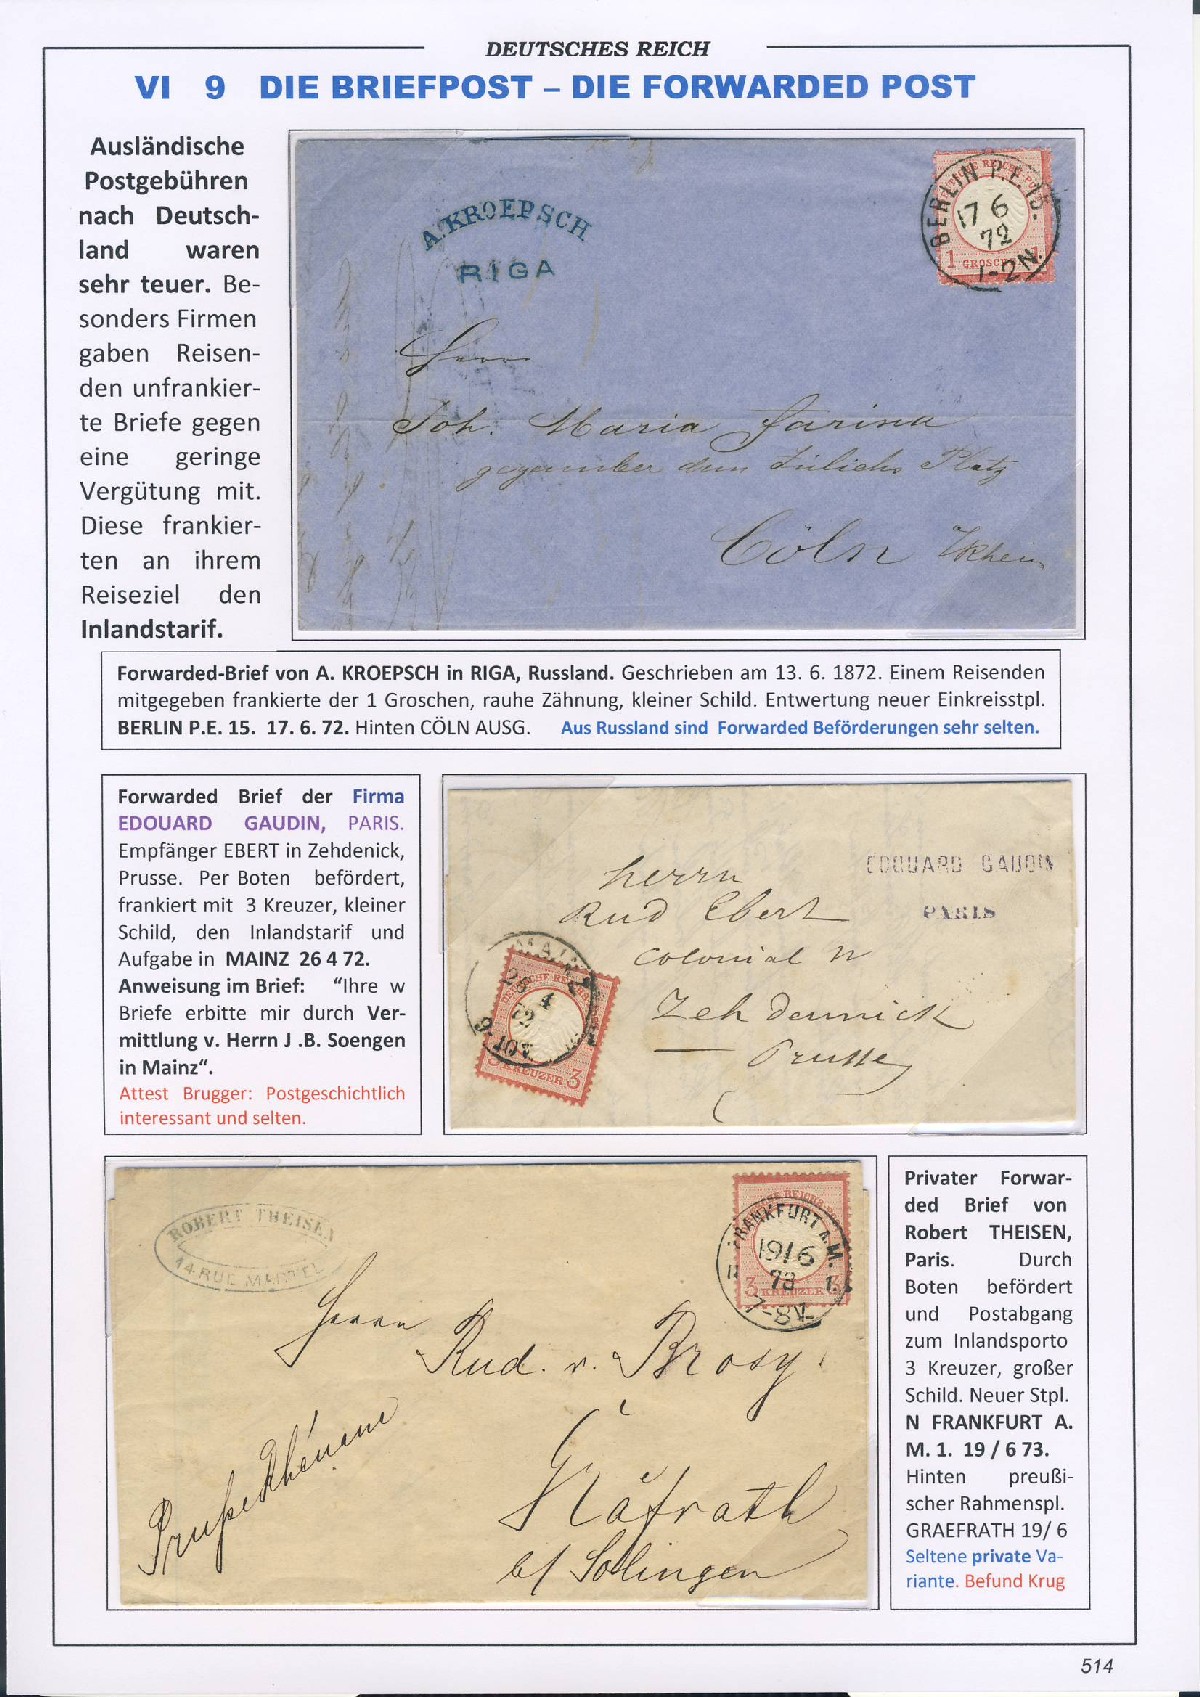 DEUTSCHES REICH
VI 9 DIE BRIEFPOST – DIE FORWARDED POST
Ausländische
Postgebühren
nach Deutsch-
land waren
sehr teuer. Be-
sonders Firmen
gaben Reisen-
den unfrankier-
te Briefe gegen
eine geringe
Vergütung mit.
Diese frankier-
ten an ihrem
Reiseziel den
Inlandstarif.
A. KROEPSCH
RIGA
BERLIN P.E. 15.
17 6
72
1-2N.
1 GROSCHEN 1
Herrn
Joh. Maria Farina
gegenüber dem Jülichs Platz
Cöln
Forwarded-Brief von A. KROEPSCH in RIGA, Russland. Geschrieben am 13. 6. 1872. Einem Reisenden
mitgegeben frankierte der 1 Groschen, rauhe Zähnung, kleiner Schild. Entwertung neuer Einkreisstpl.
BERLIN P.E. 15. 17. 6. 72. Hinten CÖLN AUSG. Aus Russland sind Forwarded Beförderungen sehr selten.
Forwarded Brief der Firma
EDOUARD GAUDIN, PARIS.
Empfänger EBERT in Zehdenick,
Prusse. Per Boten befördert,
frankiert mit 3 Kreuzer, kleiner
Schild, den Inlandstarif und
Aufgabe in MAINZ 26 4 72.
Anweisung im Brief: "Ihre w
Briefe erbitte mir durch Ver-
mittlung v. Herrn J .B. Soengen
in Mainz“.
Attest Brugger: Postgeschichtlich
interessant und selten.
EDOUARD GAUDIN
PARIS
herrn
Rud Ebert
Colonial W
Zehdennick
Prusse
MAINZ
26 4
72
DEUTSCHE REICHS
3 KREUZER 3
ROBERT THEISEN
44 RUE MARTEL
FRANKFURT A. M.
19/6
73
7-8V.
3 KREUZER
Herrn
Rud. v. Brosy
Gräfrath
b/ Solingen
Prusse Rhénane
Privater Forwar-
ded Brief von
Robert THEISEN,
Paris. Durch
Boten befördert
und Postabgang
zum Inlandsporto
3 Kreuzer, großer
Schild. Neuer Stpl.
N FRANKFURT A.
M. 1. 19 / 6 73.
Hinten preußi-
scher Rahmenspl.
GRAEFRATH 19/ 6
Seltene private Va-
riante. Befund Krug
514